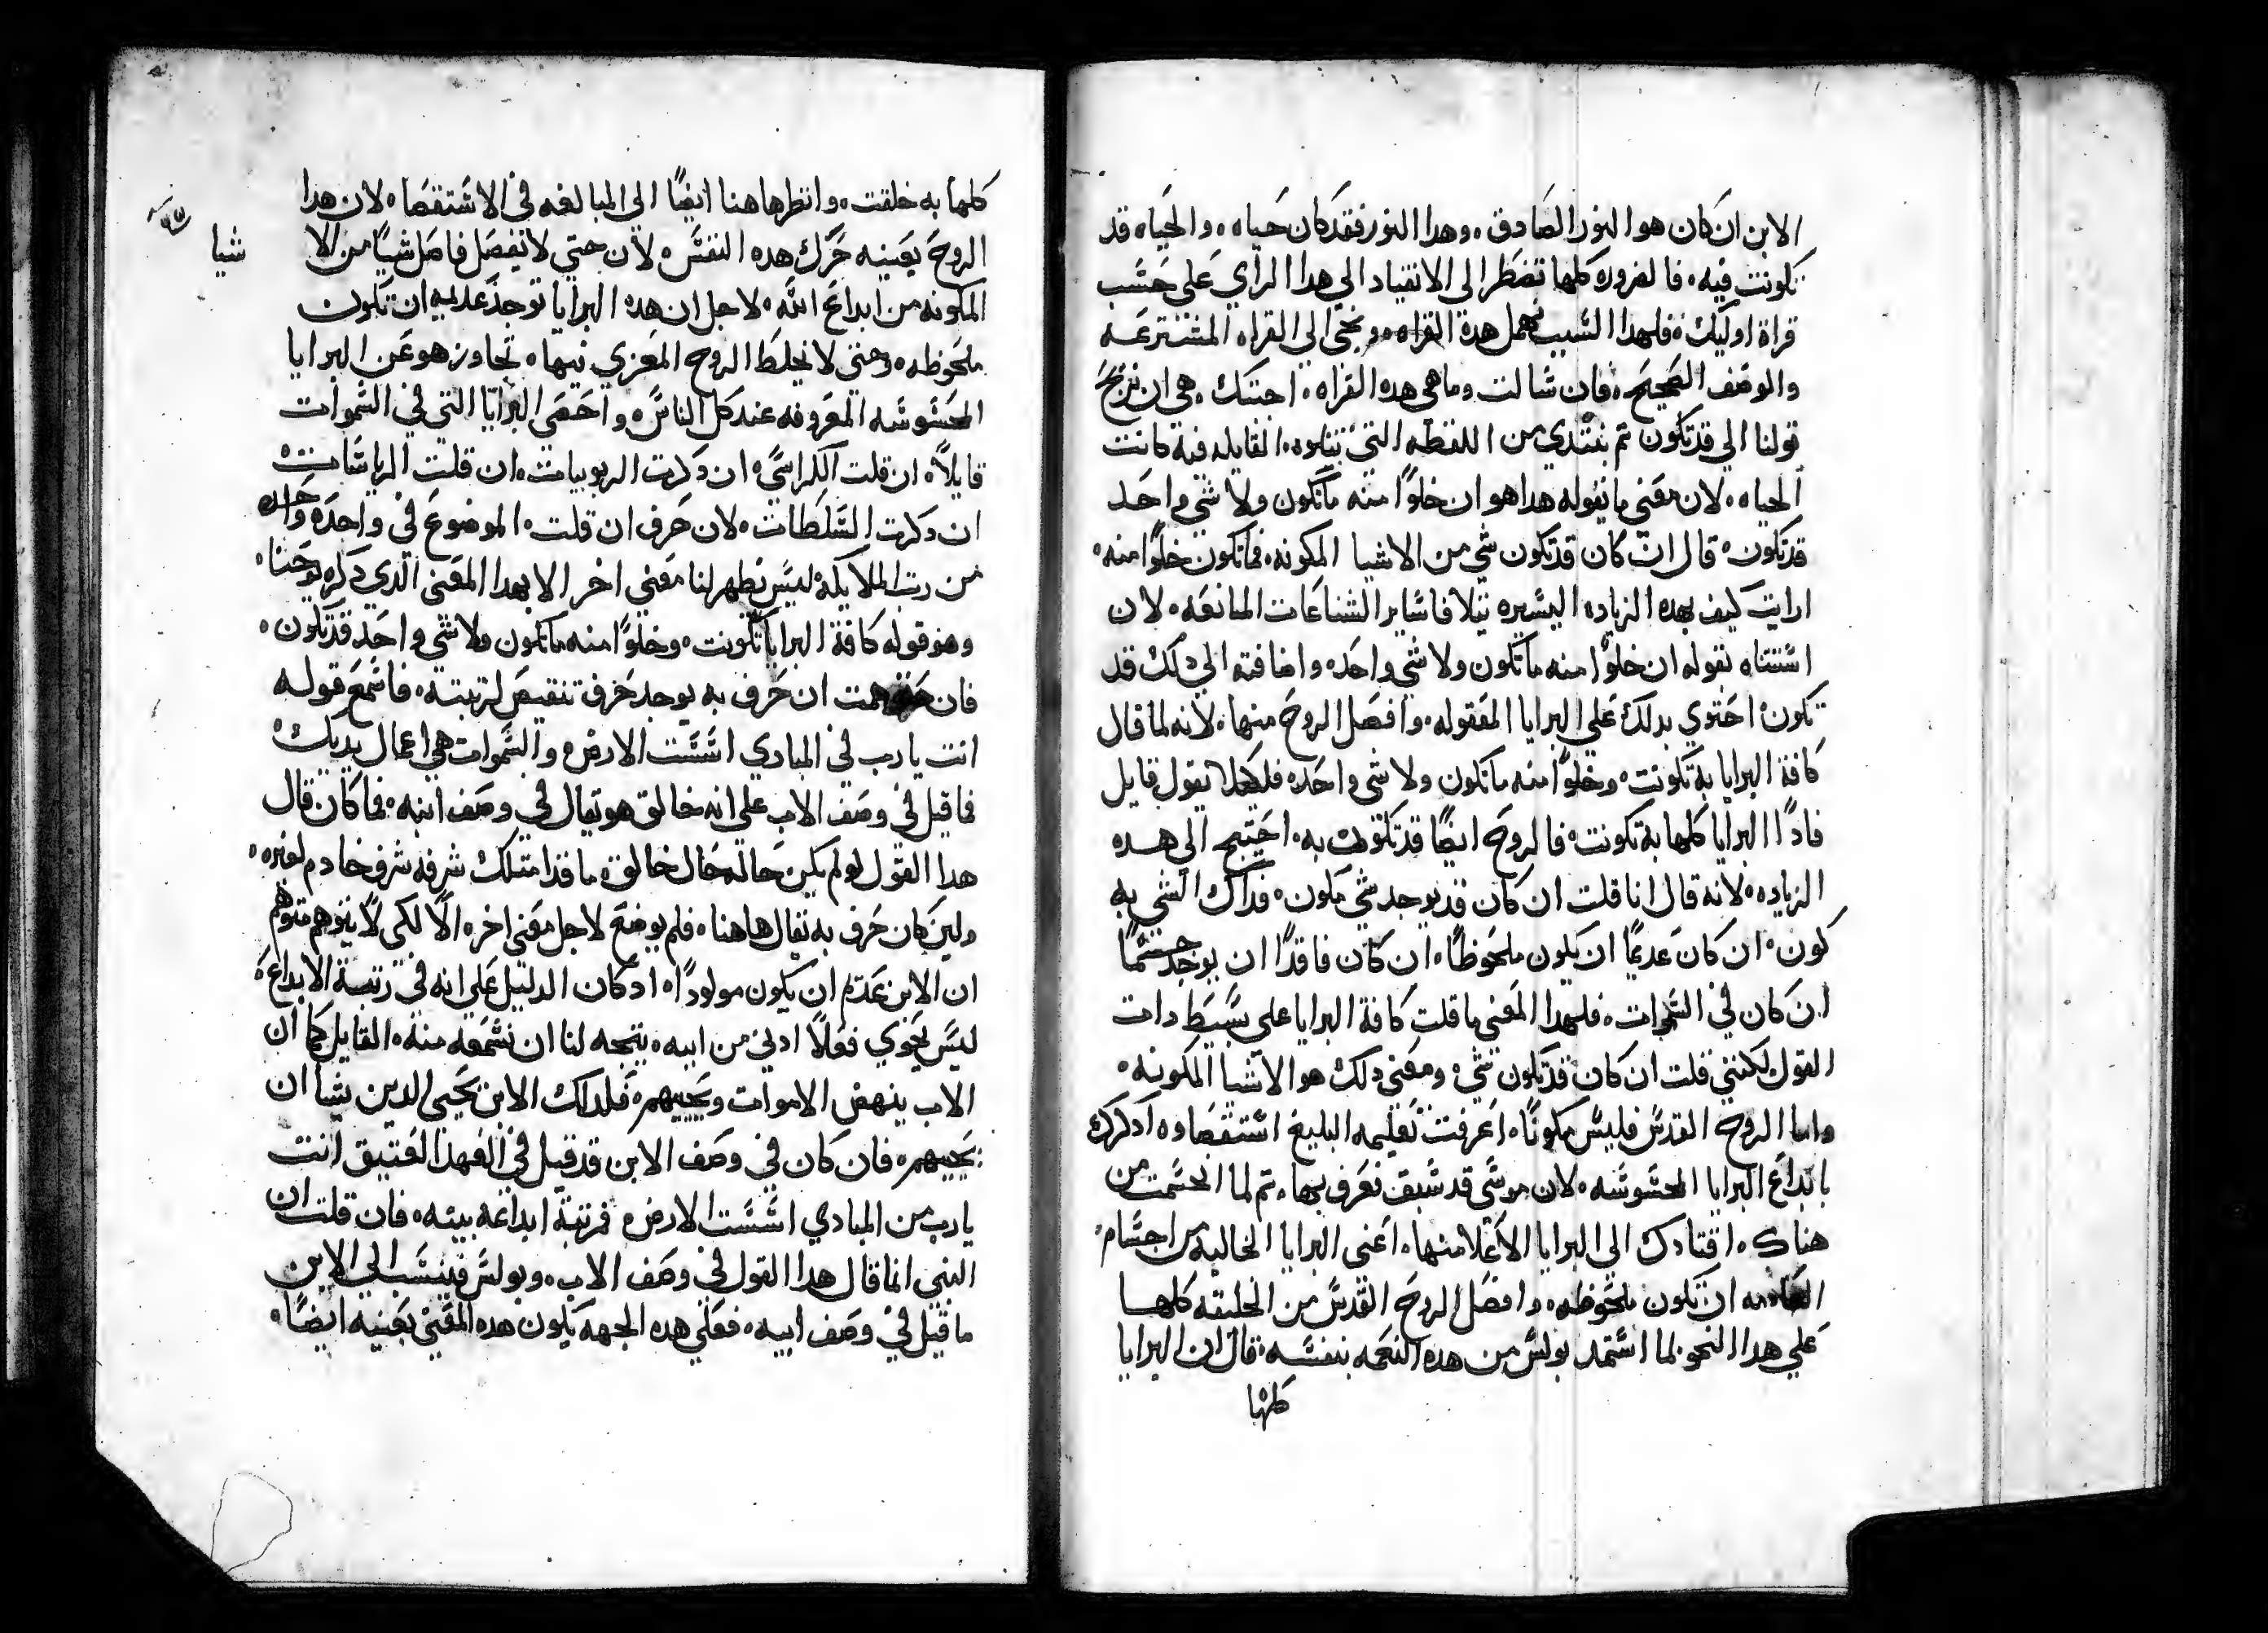 الابن ان كان هو النور الصادق ٠ وهدا النور فقد كان حياه ٠ والحياه قد
تكونت فيه ٠ فالضروره كلها تضطر الى الانقياد الي هدا الراي علي حسب
قراة اوليك ٠ فلهدا السبب نهمل هدة القراه ٠ ونجي الي القراه المشترعه
والوصف الصحيح ٠ فان سالت وما هي هده القراه ٠ اجبتك ٠ هي ان نزيح
قولنا الي قد تكون تم نبتدي من اللفظه التي تتلوه ٠ القايله فيه كانت
الحياه ٠ لان معني ما يقوله هدا هو ان خلوًا منه ما تكون ولا شي واحد
قد تكون ٠ قال ان كان قد تكون شي من الاشيا المكونه ٠ فما تكون خلوًا منه ٠
ارايت كيف بهده الزياده اليسيره يتلافا ساير الشناعات المانعه ٠ لان
استتناه بقوله ان خلوًا منه ما تكون ولا شي واحد ٠ واضافته الي دلك قد
تكون ٠ احتوي بدلك علي البرايا المعقوله ٠ وافصل الروح منها ٠ لانه لما قال
كافة البرايا به تكونت ٠ وخلوًا منه ما تكون ولا شي واحد ٠ فلكيلا يقول قايل
فادًا البرايا كلها به تكونت ٠ فالروح ايضًا قد تكون به ٠ احتيج الي هده
الزياده ٠ لانه قال انا قلت ان كان قد يوجد شي مكون ٠ فداك الشي به
كون ٠ ان كان عديمًا ان يكون ملحوظًا ٠ ان كان فاقدًا ان يوجد جسمًا
ان كان في السموات ٠ فلهدا المعني ما قلت كافة البرايا علي بسيط دات
القول لكنني قلت ان كان قد تكون شي ٠ ومعني دلك هو الاشيا المكونه ٠
واما الروح القدس فليس مكونًا ٠ اعرفت تعليمه البليغ استقصاوه ٠ ادكرك
بابداع البرايا المحسوسه ٠ لان موسي قد سبق فعرف بها ٠ تم لما انحسمت من
هناك ٠ اقتادك الي البرايا الاعلا منها ٠ اعني البرايا الخاليه من اجسام
ان تكون ملحوظه ٠ وافصل الروح القدس من الخليقه كلها
علي هدا النحو ٠ لما استمد بولس من هده النعمه بنفسه ٠ قال ان البرايا
كلها
كلها به خلقت ٠ وانظر هاهنا ايضًا الي المبالغه في الاستقصا ٠ لان هدا
الروح بعينه حرك هده النفس ٠ لان حتي لا يفصل فاصل شيًا من الا شيا
المكونه من ابداع الله ٠ لاجل ان هده البرايا توجد عديمه ان تكون
ملحوظه ٠ وحتي لا يخلط الروح المعزي فيها ٠ تجاوز هو عن البرايا
المحسوسه المعروفه عند كل الناس ٠ واحصي البرايا التي في السموات
قايلاً ٠ ان قلت الكراسي ٠ ان دكرت الربوبيات ٠ ان قلت الرياسات ٠
ان دكرت السلطات ٠ لان حرف ان قلت ٠ الموضوع في واحده واحده
من رتب الملايكه ٠ ليس يظهر لنا معني اخر الا بهدا المعني الدي دكره يوحنا ٠
وهو قوله كافة البرايا تكونت ٠ وخلوًا منه ما تكون ولا شي واحد قد تكون ٠
فان ان حرف به يوجد حرف تنقيص لرتبته ٠ فاسمع قوله
انت يا رب في المبادي اسست الارض ٠ والسموات هي اعمال يديك ٠
فما قيل في وصف الاب علي انه خالق هو يقال في وصف ابنه ٠ فما كان قال
هدا القول لو لم يكن حاله حال خالق ٠ ما قد امتلك شرفه شرف خادم لغيره ٠
ولين كان حرف به يقال هاهنا ٠ فلم يوضع لاجل معني اخر ٠ الا لكي لا يتوهم متوهم
ان الابن عدم ان يكون مولودًا ٠ اد كان الدليل علي انه في رتبة الابداع ٠
ليس يحوي فعلاً ادني من ابيه ٠ يتجه لنا ان نسمعه منه ٠ القايل كما ان
الاب ينهض الاموات ويحييهم ٠ فلداك الابن يحيي الدين يشا ان
يحييهم ٠ فان كان في وصف الابن قد قيل في العهد العتيق انت
يا رب من المبادي اسست الارض ٠ فمرتبة ابداعه بينه ٠ فان قلت ان
النبي انما قال هدا القول في وصف الاب ٠ وبولس فينسب الي الابن
ما قيل في وصف ابيه ٠ فعلي هده الجهه يكون هده المعني بعينه ايضًا ٠